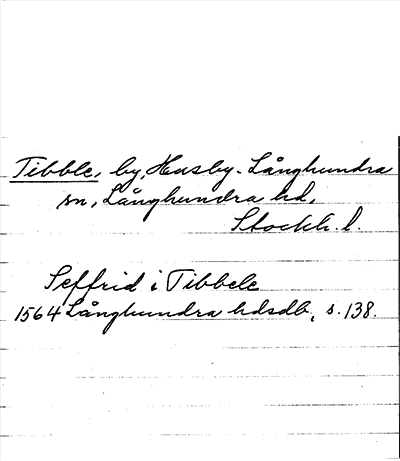 Tibble, by, Husby-Långhundra
sn, Långhundra hd,
Stockh. l.
Seffrid i Tibbele
1564 Långhundra hdsdb, s. 138.